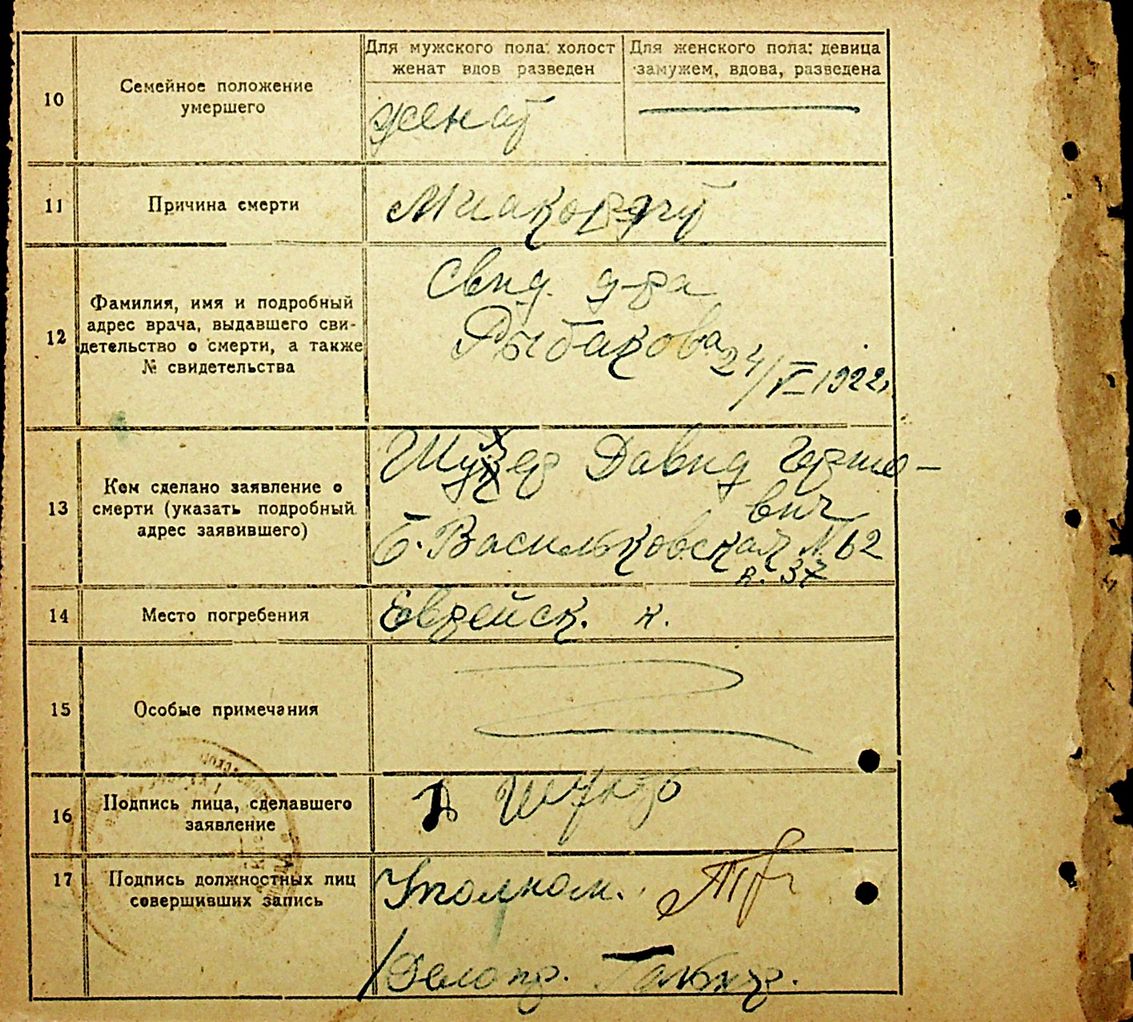 10
Семейное положение
умершего
Для мужского пола: холост
женат вдов разведен
Для женского пола: девица
замужем, вдова, разведена
женат
11
Причина смерти
Миакордит
12
Фамилия, имя и подробный
адрес врача, выдавшего сви-
детельство о смерти, а также
№ свидетельства
Свид. д-ра
Рыбакова
24/V 1922г.
13
Кем сделано заявление о
смерти (указать подробный
адрес заявившего)
Давид Гершо-
вич
Б. Васильковская №62
к. 37
14
Место погребения
Еврейск. к.
15
Особые примечания
16
Подпись лица, сделавшего
заявление
17
Подпись должностных лиц
совершивших запись
Уполном.
Делопр.